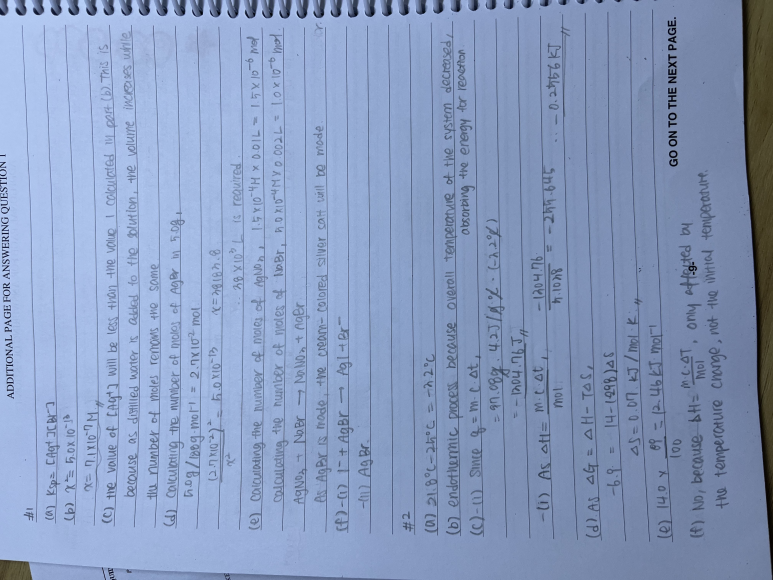 ADDITIONAL PAGE FOR ANSWERING QUESTION 1
#1
(a) Ksp = [Ag⁺][Br⁻]
(b) x² = 5.0×10⁻¹³
x = 7.1×10⁻⁷ M
(c) the value of [Ag⁺] will be less than the value I calculated in part (b). This is
because as distilled water is added to the solution, the volume increases while
the number of moles remains the same
(d) calculating the number of moles of AgBr in 5.0g,
5.0g/188g mol⁻¹ = 2.7×10⁻² mol
(2.7×10⁻²)² / x² = 5.0×10⁻¹³ x =
L is required.
(e) calculating the number of moles of AgNO₃, 1.5×10⁻⁴M × 0.01L = 1.5×10⁻⁶ mol
calculating the number of moles of NaBr, 5.0×10⁻⁴M × 0.002L = 1.0×10⁻⁶ mol
AgNO₃ + NaBr → NaNO₃ + AgBr
As AgBr is made, the cream-colored silver salt will be made.
(f)-(i) I⁻ + AgBr → AgI + Br⁻
-(ii) AgBr.
#2
(a) 21.8°C - 24°C = -2.2°C
(b) endothermic process because overall temperature of the system decreased,
absorbing the energy for reaction
(c)-(i) Since q = mcΔt,
= 97.08g · 4.2J/g°C · (-2.2°C)
= J
-(i) As ΔH = mcΔt / mol,
(d) As ΔG = ΔH - TΔS,
-6.9 = 14-(298)ΔS
ΔS = 0.07 kJ/mol·K
(e) 14.0 × 89/100 = 12.46 kJ mol⁻¹
(f) No, because ΔH = mcΔT / mol, only affected by
the temperature change, not the initial temperature.
GO ON TO THE NEXT PAGE.
-9-